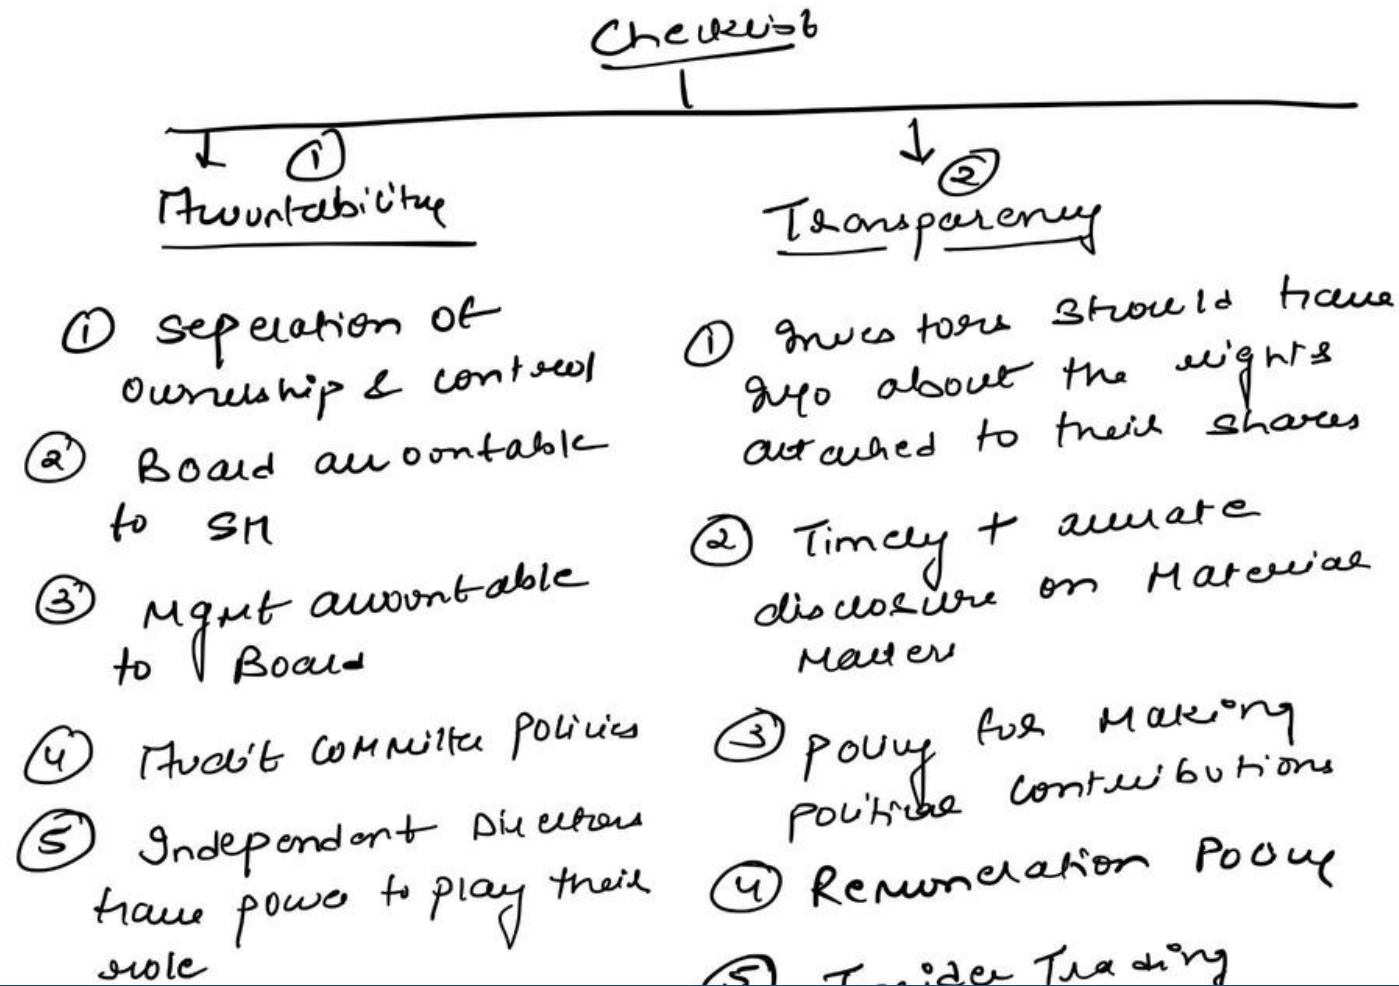 Checklist
①
Accountability
① Seperation of
ownership & control
② Board accountable
to SH
③ Mgmt accountable
to Board
④ Audit Committee Policies
⑤ Independent Directors
have power to play their
role
②
Transparency
① Investors should have
Info about the rights
attached to their shares
② Timely + accurate
disclosure on Material
Matters
③ Policy for Making
political contributions
④ Remuneration Policy
⑤ Insider Trading